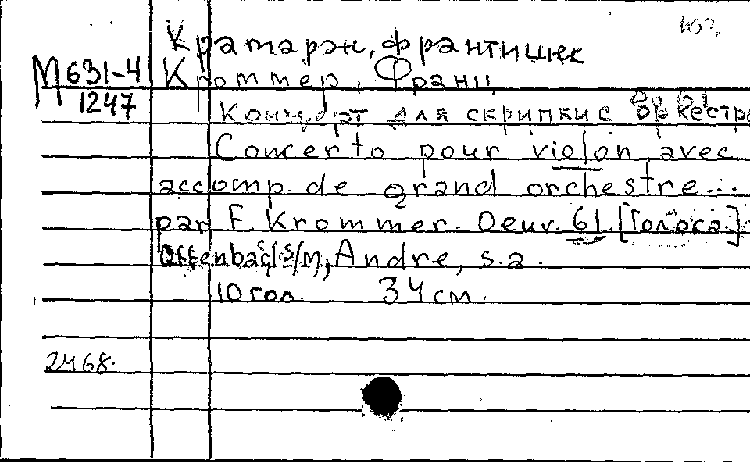 Кратарж, франтишек
М 631-4 Кроммер, Франц
1247
Концерт для скрипки с оркестро
Concerto pour violon avec
accomp. de grand orchestre...
par F. Krommer. Oeuv. 61. [Голоса.]
Offenbach s/M, Andre, s.a.
10 гол. 34 см.
2468.